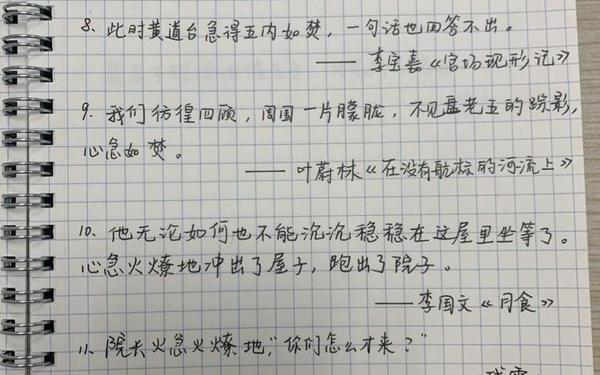 8、此时黄道台急得五内如焚，一句话也回答不出。
—— 李宝嘉《官场现形记》
9、我们彷徨四顾，周围一片朦胧，不见盘老五的踪影，
心急如焚。
—— 叶蔚林《在没有航标的河流上》
10、他无论如何也不能沉沉稳稳在这屋里坐等了。
心急火燎地冲出了屋子，跑出了院子。
—— 李国文《月食》
11、院长火急火燎地："你们怎么才来？"